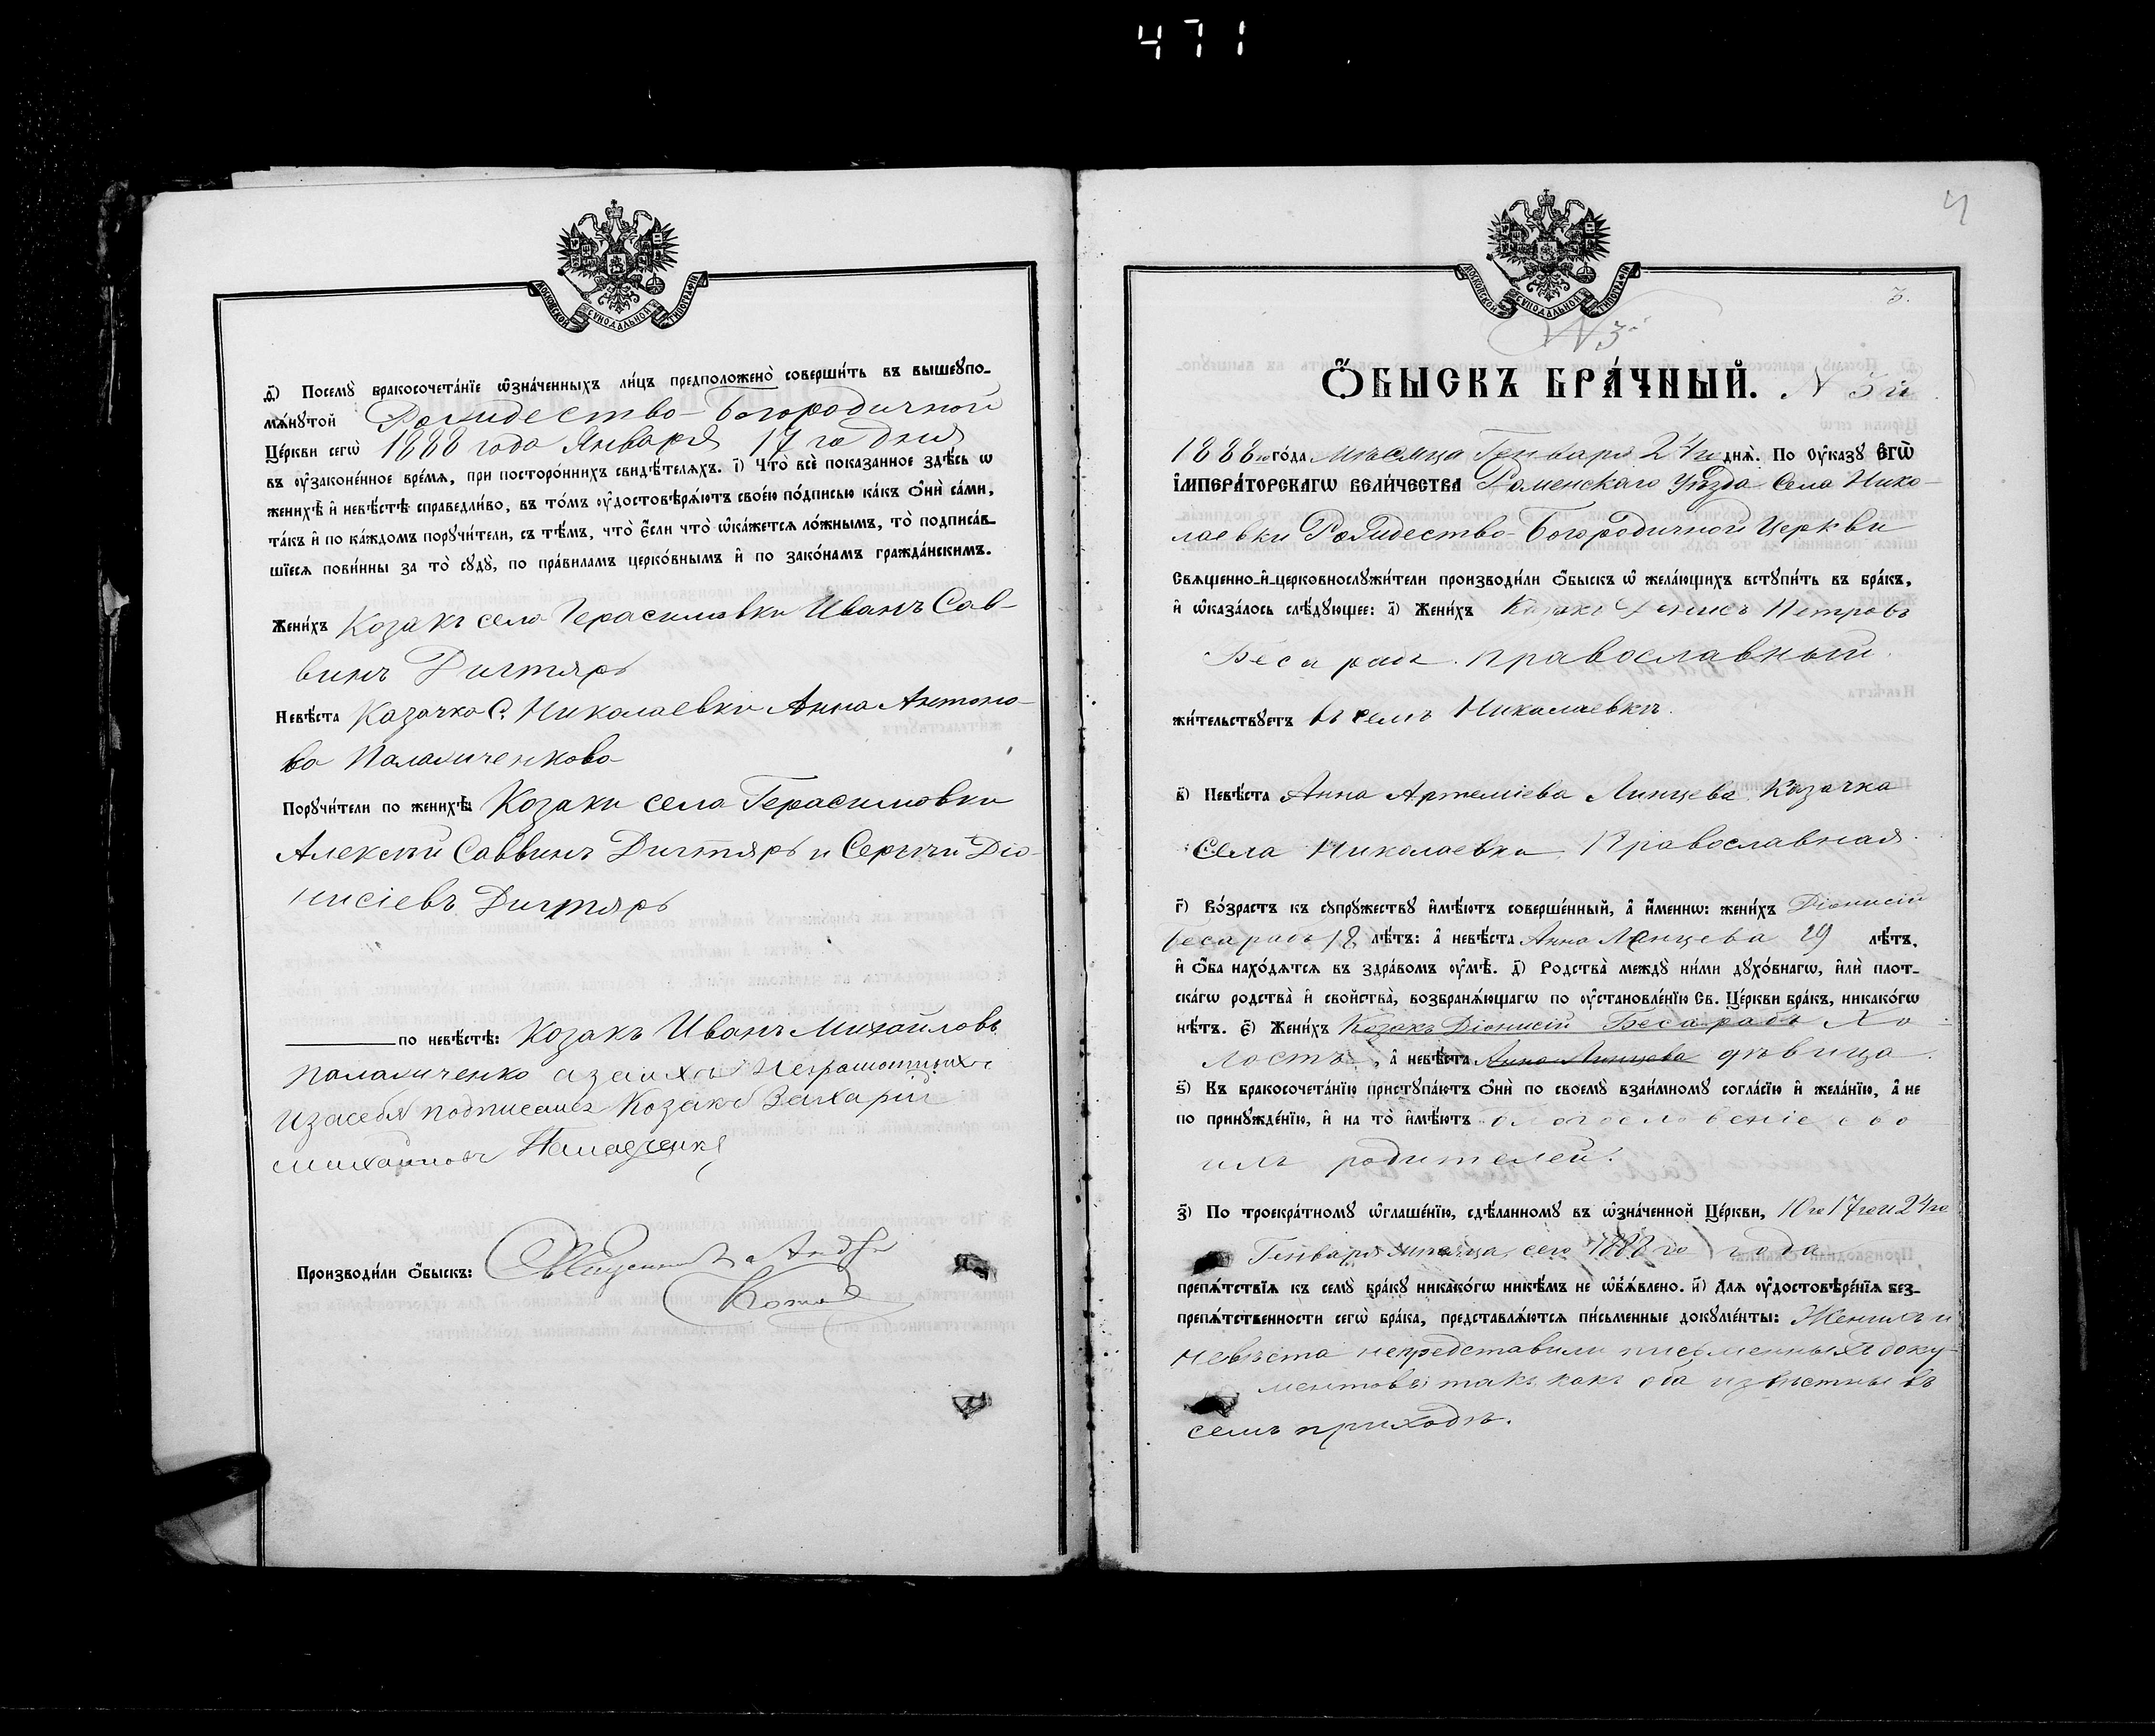 471
МОСКОВСКОЙ СѴНОДАЛЬНОЙ ТИПОГРАФІИ
д҃і) Посемꙋ̀ бракосочета́нїе ѡ҆зна́ченныхъ ли́цъ предположено̀ соверши́ть въ вышеꙋпо-
мѧ́нꙋтой Рождество-Богородичной
Це́ркви сегѡ̀ 1888 года Января 17го дня
въ ᲂу҆законе́нное вре́мѧ, при посторо́ннихъ свидѣ́телѧхъ. і҃) Что̀ всѐ показанное здѣ́сь ѡ
женихѣ̀ и҆ невѣ́стѣ справедли́во, въ то́мъ ᲂу҆достовѣрѧ́ютъ свое́ю по́дписью ка́къ ѻ҆нѝ са́ми,
та́къ и҆ по ка́ждомъ порꙋчи́тели, съ тѣ́мъ, что̀ є҆́сли что̀ ѡ҆ка́жется ло́жнымъ, то̀ подписа́в-
шїеся пови́нны за то̀ сꙋдꙋ̀, по пра́виламъ церко́внымъ и҆ по зако́намъ гражда́нскимъ.
Жени́хъ Козакъ села Герасимовки Иванъ Сав-
винъ Дигтярь
Невѣ́ста Казачка С. Николаевки Анна Антоно-
ва Паламиченкова
Порꙋчи́тели по женихѣ̀: Козаки села Герасимовки
Алексѣй Саввинъ Дигтярь и Сергѣй Діо-
нисіевъ Дигтярь
по невѣ́стѣ: Козакъ Иванъ Михайловъ
Паламиченко а за ихъ неграмотныхъ
и за себя подписался Козакъ Захарій
Михайловъ
Производи́ли ѻ҆́быскъ: Священникъ
4
МОСКОВСКОЙ СѴНОДАЛЬНОЙ ТИПОГРАФІИ
3.
N 3й
Ѻ҆́БЫСКЪ БРА́ЧНЫЙ. N 3й
1888го го́да мѣсяца Генваря 24го днѧ̀. По Ꙋ҆ка́зꙋ Є҆ГѠ̀
І҆МПЕРА́ТОРСКАГѠ ВЕЛИ́ЧЕСТВА Роменскаго Уѣзда Села Нико-
лаевки Рождество-Богородичной Церкви
Свѧщенно-и҆-церковнослꙋжи́тели производи́ли ѻ҆́быскъ ѡ҆ жела́ющихъ встꙋпи́ть въ бра́къ,
и҆ ѡ҆каза́лось слѣ́дꙋющее: а҃) Жени́хъ Козакъ Денисъ Петровъ
Бесарабъ. православный.
жи́тельствꙋетъ въ селѣ Николаевкѣ.
в҃) Невѣ́ста Анна Артеміева Линцева Казачка
Села Николаевки, Православная.
г҃) Во́зрастъ къ сꙋпрꙋ́жествꙋ и҆мѣ́ютъ соверше́нный, а҆ и҆́менно: жени́хъ Діонисій
Бесарабъ 18 лѣ́тъ: а҆ невѣ́ста Анна Линцева 19 лѣ́тъ,
и҆ ѻ҆́ба нахо́дятся въ здра́вомъ ᲂу҆мѣ̀. д҃) Родства̀ междꙋ̀ ни́ми дꙋхо́внагѡ, и҆лѝ плот-
ска́гѡ родства̀ и҆ свойства̀, возбранѧ́ющагѡ по ᲂу҆становле́нїю Св. Це́ркви бра́къ, никако́гѡ
нѣ́тъ. є҃) Жени́хъ Козакъ Діонисій Бесарабъ Хо-
лостъ, а҆ невѣ́ста Анна Линцева дѣвица.
ѕ҃) Къ бракосочета́нїю пристꙋпа́ютъ ѻ҆нѝ по своемꙋ̀ взаи́мномꙋ согла́сїю и҆ жела́нїю, а҆ не
по принꙋжде́нїю, и҆ на то̀ и҆мѣ́ютъ благословеніе сво
ихъ родителей.
з҃) По троекра́тномꙋ ѡ҆глаше́нїю, сдѣ́ланномꙋ въ ѡ҆зна́ченной Це́ркви, 10го 17го и 24го
Генваря мѣсяца, сего 1888го года
препѧ́тствїѧ къ семꙋ̀ бра́кꙋ никако́гѡ никѣ́мъ не ѡ҆б̾ѧ́влено. и҃) Для ᲂу҆достовѣре́нїѧ без-
препѧ́тственности сегѡ̀ бра́ка, представлѧ́ются пи́сьменные докꙋме́нты: Женихъ и
невѣста непредставили письменныхъ доку-
ментовъ такъ какъ оба извѣстны въ
семъ приходѣ.